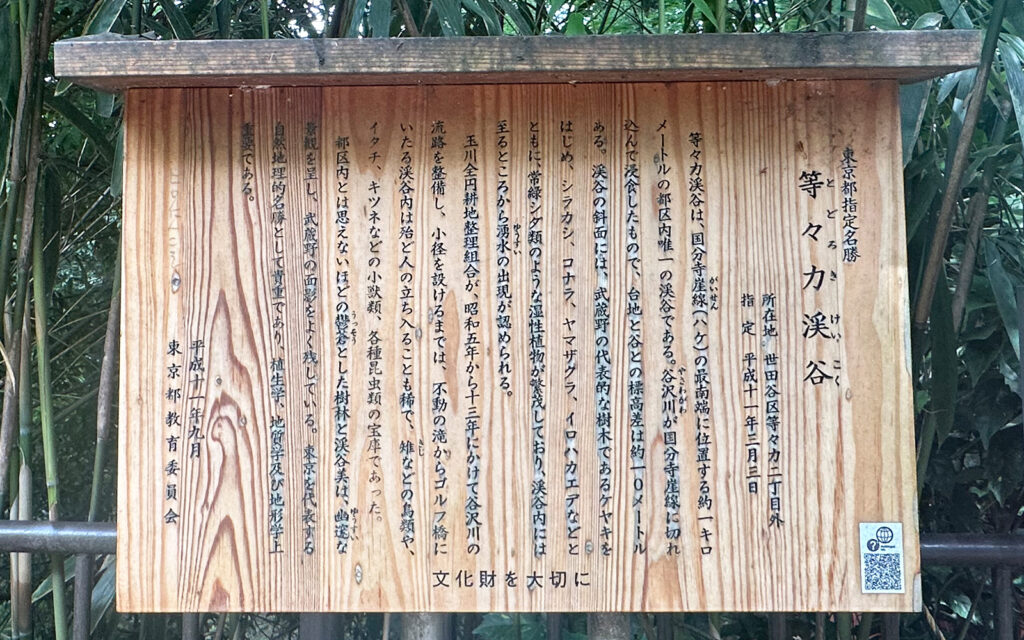 東京都指定名勝
とどろきけいこく
等々力渓谷
所在地 世田谷区等々力二丁目外
指定 平成十一年三月三日
がいせん
等々力渓谷は、国分寺崖線(ハケ)の最南端に位置する約一キロ
やざわがわ
メートルの都区内唯一の渓谷である。谷沢川が国分寺崖線に切れ
込んで浸食したもので、台地と谷との標高差は約一〇メートル
ある。渓谷の斜面には、武蔵野の代表的な樹木であるケヤキを
はじめ、シラカシ、コナラ、ヤマザクラ、イロハカエデなどと
ともに、常緑シダ類のような湿性植物が繁茂しており、渓谷内には
ゆうすい
至るところから湧水の出現が認められる。
玉川全円耕地整理組合が、昭和五年から十三年にかけて谷沢川の
流路を整備し、小径を設けるまでは、不動の滝からゴルフ橋に
きじ
いたる渓谷内は殆ど人の立ち入ることも稀で、雉などの鳥類や、
イタチ、キツネなどの小獣類、各種昆虫類の宝庫であった。
うっそう ゆうすい
都区内とは思えないほどの鬱蒼とした樹林と渓谷美は、幽邃な
景観を呈し、武蔵野の面影をよく残している。東京を代表する
自然地理的名勝として貴重であり、植生学、地質学及び地形学上
重要である。
平成十一年九月
東京都教育委員会
文化財を大切に